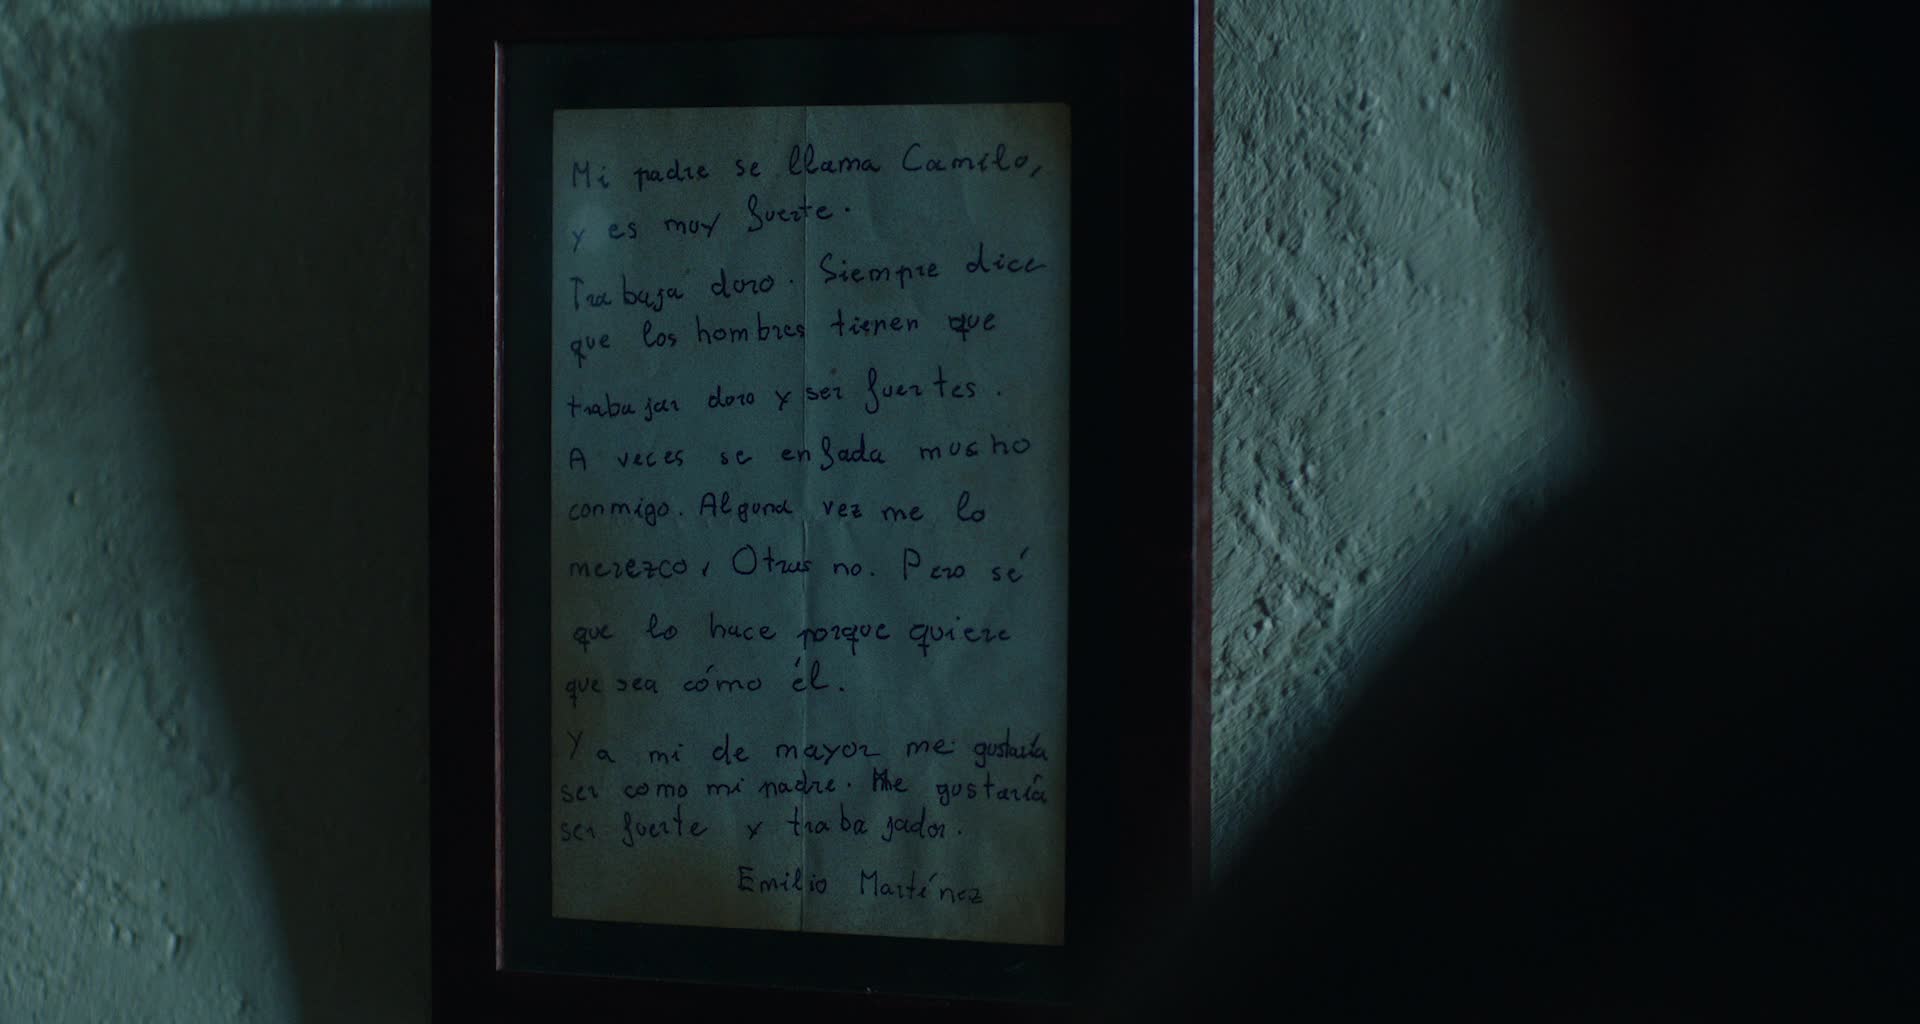 Mi padre se llama Camilo,
y es muy fuerte.
Trabaja duro. Siempre dice
que los hombres tienen que
trabajar duro y ser fuertes.
A veces se enfada mucho
conmigo. Alguna vez me lo
merezco, Otras no. Pero sé
que lo hace porque quiere
que sea cómo él.
Y a mi de mayor me gustaría
ser como mi padre. Me gustaría
ser fuerte y trabajador.
Emilio Martínez